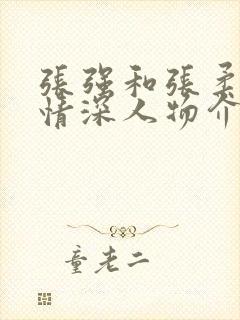 張强和張柔
情深人物介
童老二